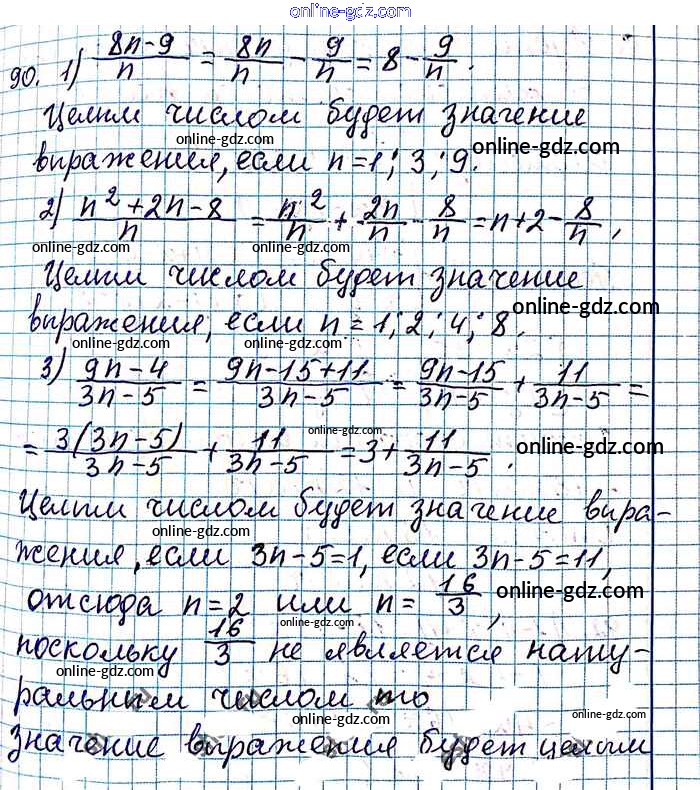 online-gdz.com
90. 1) (8n-9)/n = 8n/n - 9/n = 8 - 9/n.
Целым числом будет значение
online-gdz.com online-gdz.com
выражения, если n = 1; 3; 9.
2) (n² + 2n - 8)/n = n²/n + 2n/n - 8/n = n + 2 - 8/n,
online-gdz.com online-gdz.com online-gdz.com
Целым числом будет значение
выражения, если n = 1; 2; 4; 8. online-gdz.com
online-gdz.com online-gdz.com
3) (9n-4)/(3n-5) = (9n-15+11)/(3n-5) = (9n-15)/(3n-5) + 11/(3n-5) =
= 3(3n-5)/(3n-5) + 11/(3n-5) = 3 + 11/(3n-5). online-gdz.com
Целым числом будет значение выра-
online-gdz.com
жения, если 3n-5=1, если 3n-5=11,
отсюда n=2 или n = 16/3, online-gdz.com
online-gdz.com
поскольку 16/3 не является нату-
online-gdz.com online-gdz.com
ральным числом то
online-gdz.com online-gdz.com
значение выражения будет целым